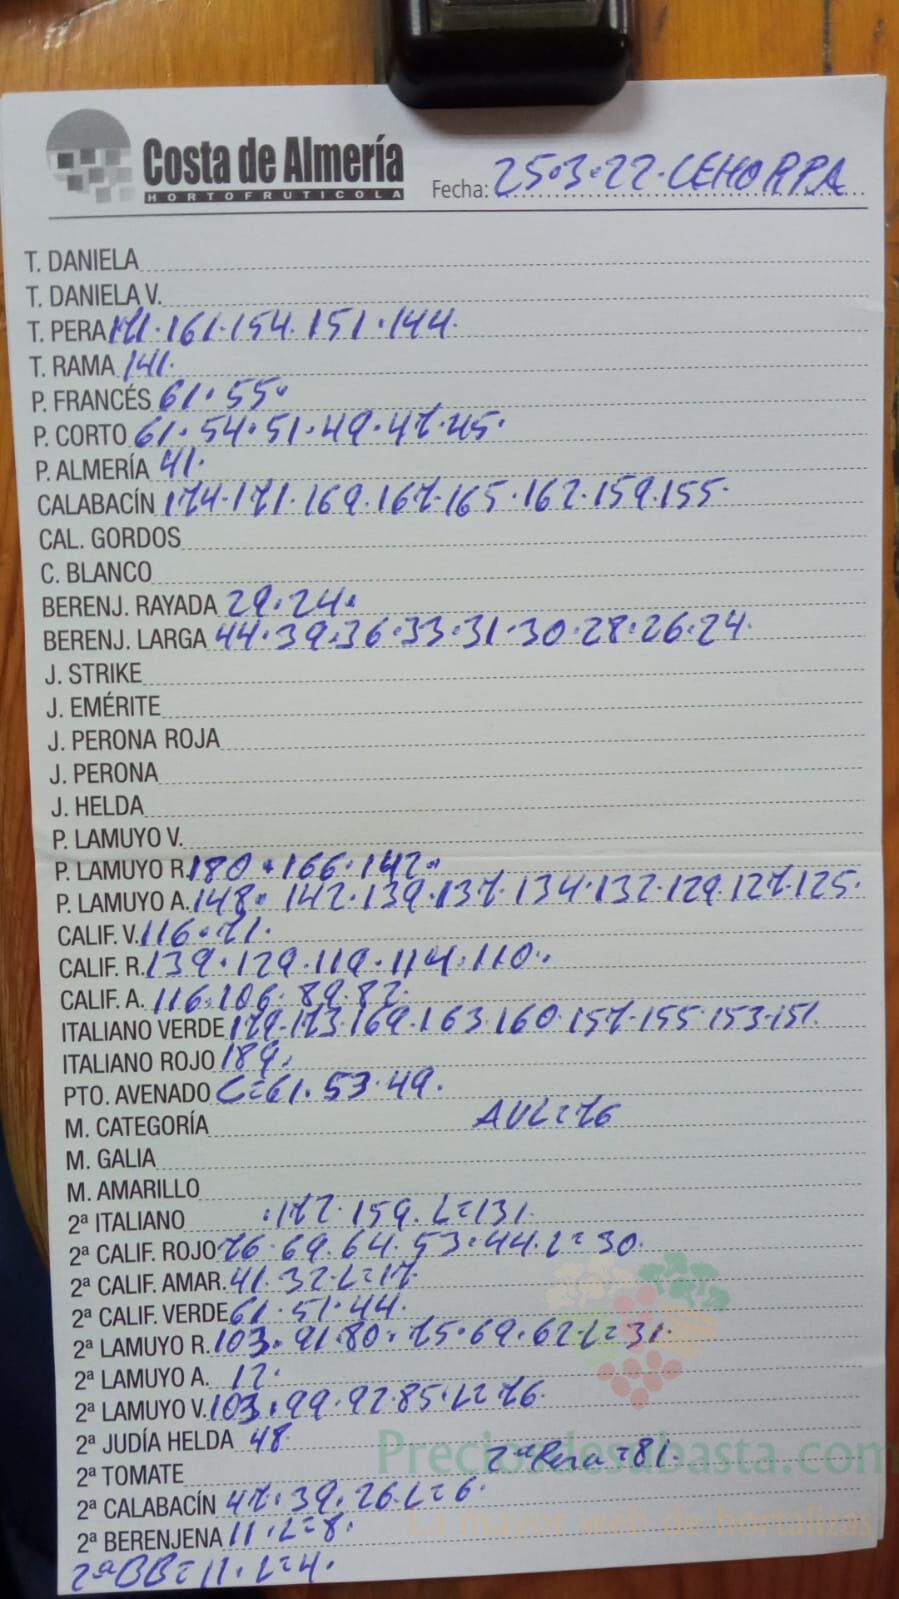 Costa de Almería
HORTOFRUTICOLA
Fecha: 25.3.22. CEHORPA
T. DANIELA
T. DANIELA V.
T. PERA 171.161.154.151.144.
T. RAMA 141.
P. FRANCÉS 61.55.
P. CORTO 61.54.51.49.47.45.
P. ALMERÍA 41.
CALABACÍN 174.171.169.167.165.162.159.155.
CAL. GORDOS
C. BLANCO
BERENJ. RAYADA 29.24.
BERENJ. LARGA 44.39.36.33.31.30.28.26.24.
J. STRIKE
J. EMÉRITE
J. PERONA ROJA
J. PERONA
J. HELDA
P. LAMUYO V.
P. LAMUYO R. 180.166.142.
P. LAMUYO A. 148. 142.139.137.134.132.129.127.125.
CALIF. V. 116.71.
CALIF. R. 139.129.119.114.110.
CALIF. A. 116.106.89.82.
ITALIANO VERDE 179.173.169.163.160.157.155.153.151.
ITALIANO ROJO 189.
PTO. AVENADO C=61.53.49.
M. CATEGORÍA AVL=76
M. GALIA
M. AMARILLO
2ª ITALIANO .172.159.L=131.
2ª CALIF. ROJO 76.69.64.53.44.L=30.
2ª CALIF. AMAR. 41.32.L=17.
2ª CALIF. VERDE 61.51.44.
2ª LAMUYO R. 103.91.80.75.69.62.L=31.
2ª LAMUYO A. 12.
2ª LAMUYO V. 103.99.92.85.L=76.
2ª JUDÍA HELDA 48
Preciosdesubasta.com
2ª TOMATE 2ª Pera=81.
2ª CALABACÍN 47.39.26.L=6.
La mayor web de hortalizas
2ª BERENJENA 11.L=8.
2ªBB=11.L=4.